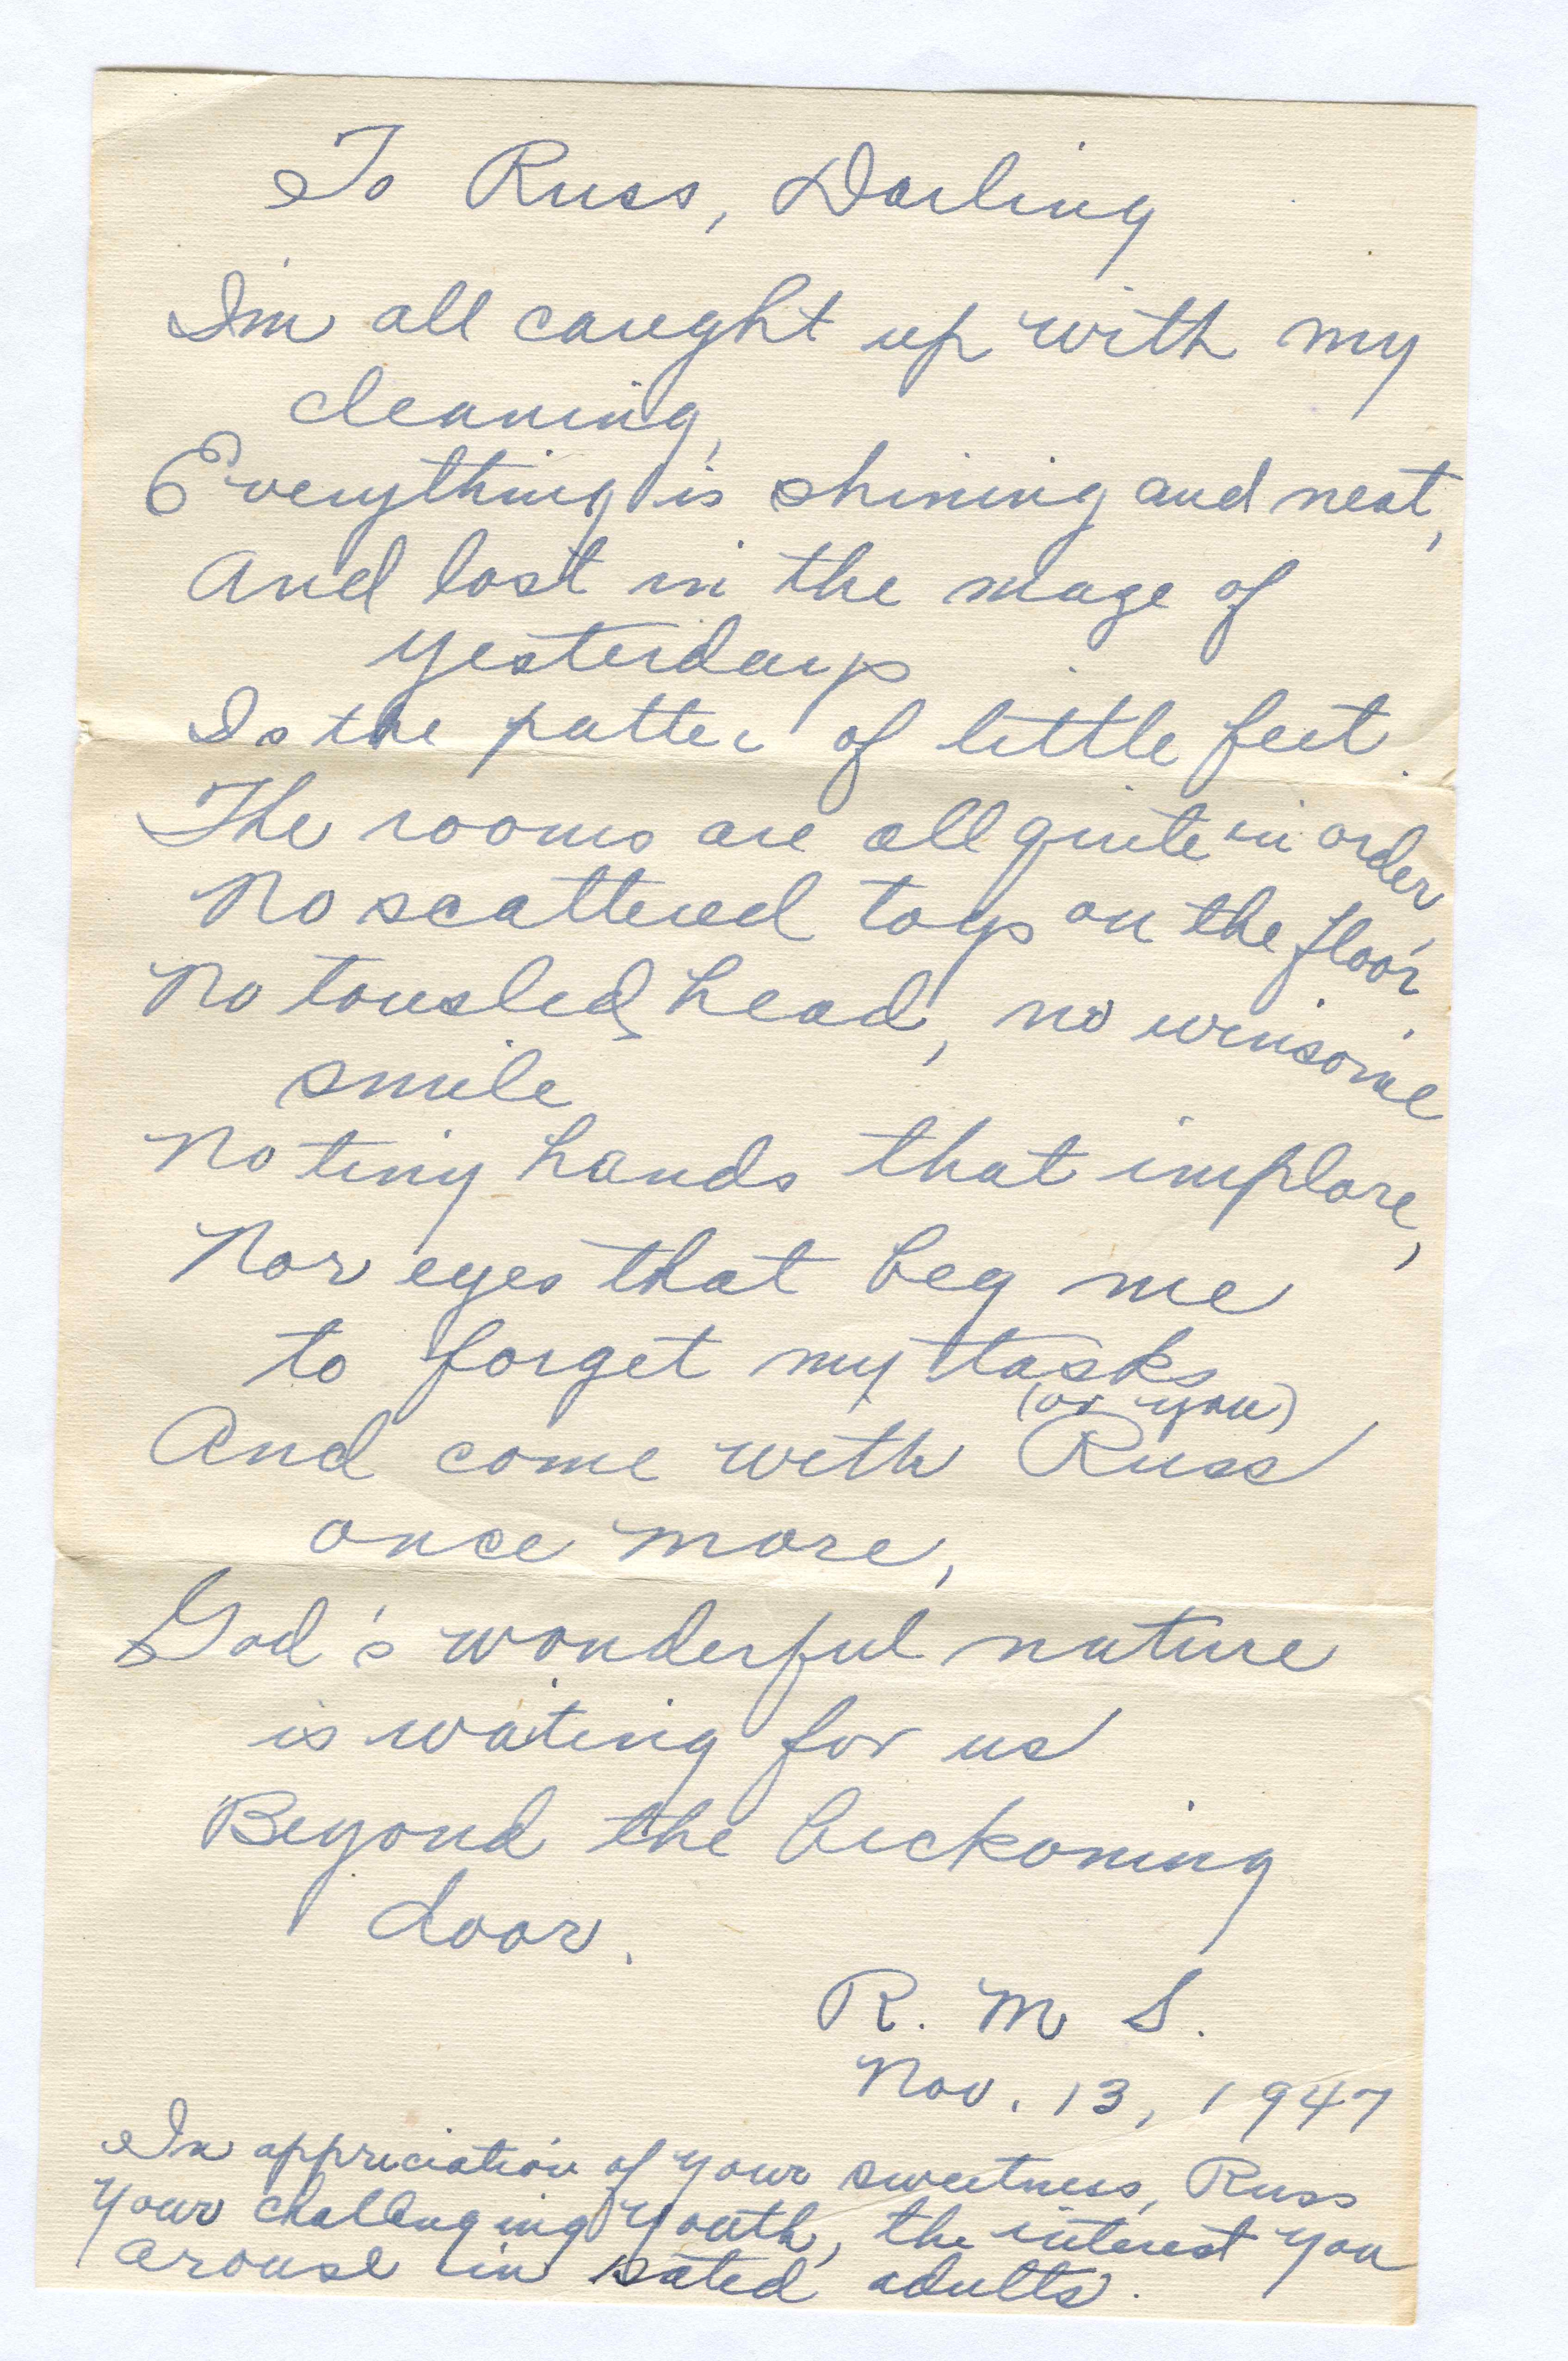 To Russ, Darling
I'm all caught up with my
cleaning,
Everything is shining and neat,
And lost in the maze of
yesterdays
Is the patter of little feet.
The rooms are all quite in order,
No scattered toys on the floor.
No tousled head, no winsome
smile
No tiny hands that implore,
Nor eyes that beg me
to forget my tasks
(or you)
And come with Russ
once more,
God's wonderful nature
is waiting for us
Beyond the beckoning
door.
R. M S.
Nov. 13, 1947
In appreciation of your sweetness, Russ
Your challenging youth, the interest you
arouse in sated adults.